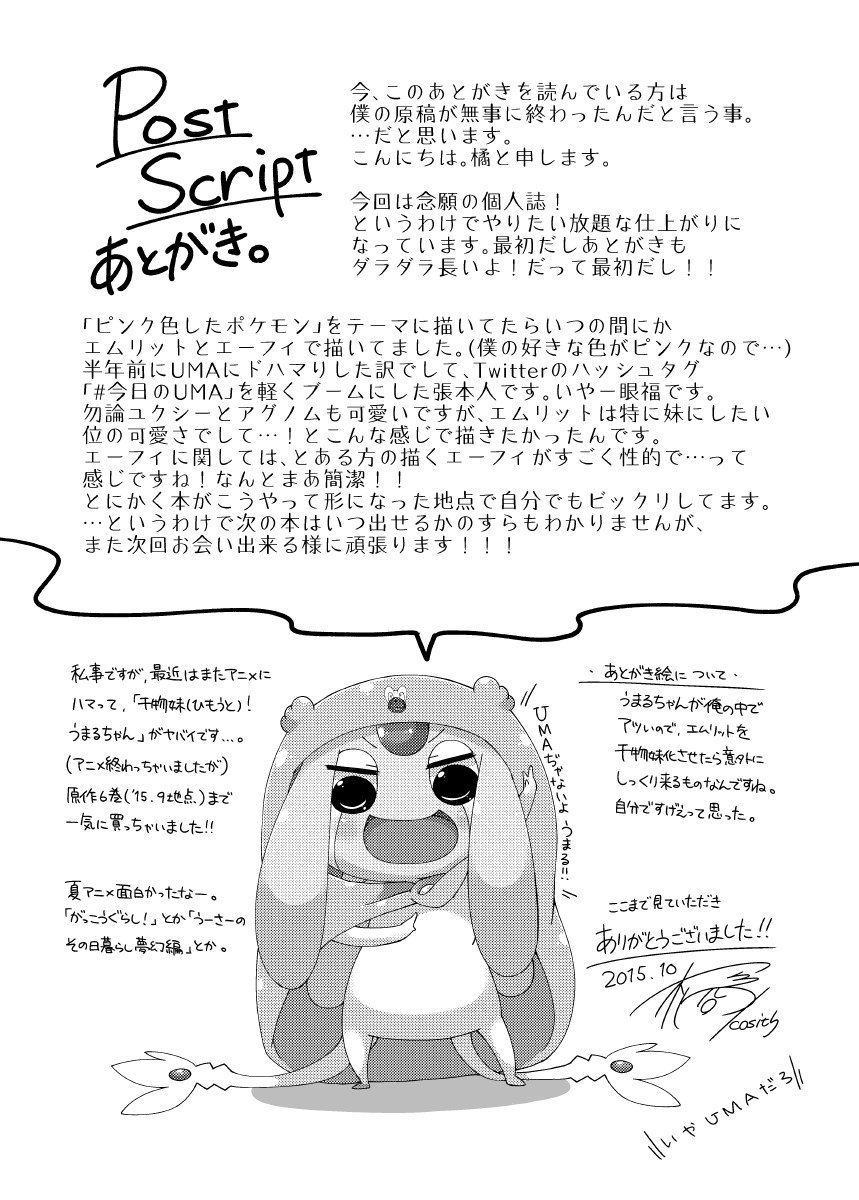 Post
Script
あとがき。
今、このあとがきを読んでいる方は
僕の原稿が無事に終わったんだと言う事。
…だと思います。
こんにちは。橘と申します。
今回は念願の個人誌！
というわけでやりたい放題な仕上がりに
なっています。最初だしあとがきも
ダラダラ長いよ！だって最初だし！！
「ピンク色したポケモン」をテーマに描いてたらいつの間にか
エムリットとエーフィで描いてました。(僕の好きな色がピンクなので…)
半年前にUMAにドハマりした訳でして、Twitterのハッシュタグ
「#今日のUMA」を軽くブームにした張本人です。いやー眼福です。
勿論ユクシーとアグノムも可愛いですが、エムリットは特に妹にしたい
位の可愛さでして…！とこんな感じで描きたかったんです。
エーフィに関しては、とある方の描くエーフィがすごく性的で…って
感じですね！なんとまあ簡潔！！
とにかく本がこうやって形になった地点で自分でもビックリしてます。
…というわけで次の本はいつ出せるかのすらもわかりませんが、
また次回お会い出来る様に頑張ります！！！
私事ですが,最近はまたアニメに
ハマって,「干物妹(ひもうと)！
うまるちゃん」がヤバイです…。
(アニメ終わっちゃいましたが)
原作6巻('15.9地点.)まで
一気に買っちゃいました!!
夏アニメ面白かったなー。
「がっこうぐらし！」とか「うーさーの
その日暮らし夢幻編」とか。
UMAぢゃないよ うまる!!
・あとがき絵について・
うまるちゃんが俺の中で
アツいので,エムリットを
干物妹化させたら意外に
しっくり来るものなんですね。
自分ですげえって思った。
ここまで見ていただき
ありがとうございました!!
2015.10
橘
cosith
いやUMAだろ